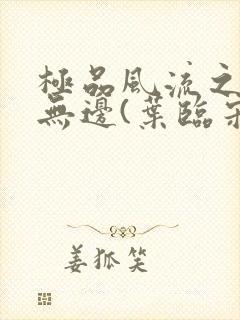 極品風流之
無邊(葉臨
姜狐笑